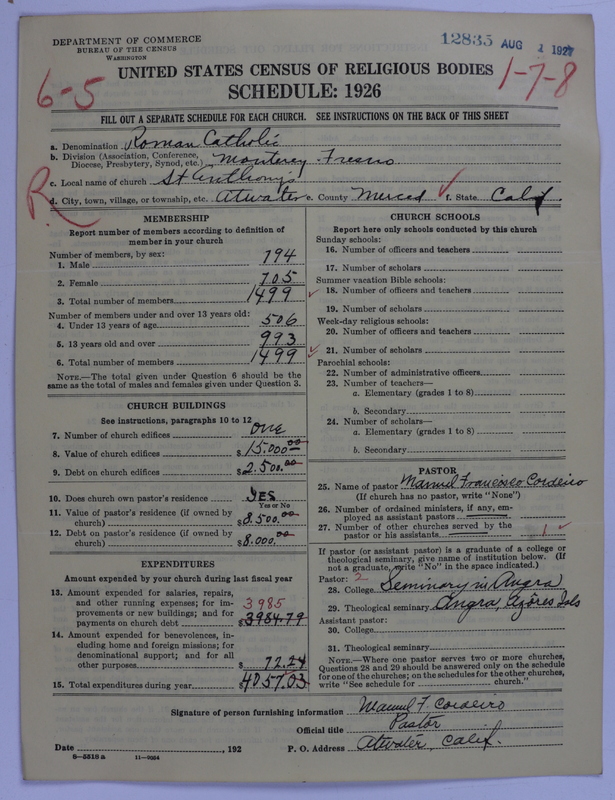 DEPARTMENT OF COMMERCE
BUREAU OF THE CENSUS
WASHINGTON
12835 AUG 1 1927
UNITED STATES CENSUS OF RELIGIOUS BODIES
SCHEDULE: 1926
6-5
1-7-8
FILL OUT A SEPARATE SCHEDULE FOR EACH CHURCH. SEE INSTRUCTIONS ON THE BACK OF THIS SHEET
a. Denomination Roman Catholic
b. Division (Association, Conference, Diocese, Presbytery, Synod, etc.) Monterey-Fresno
c. Local name of church St Anthony's
R
d. City, town, village, or township, etc. Atwater e. County Merced f. State Calif
MEMBERSHIP
Report number of members according to definition of member in your church
Number of members, by sex:
1. Male 794
2. Female 705
3. Total number of members 1499
Number of members under and over 13 years old:
4. Under 13 years of age 506
5. 13 years old and over 993
6. Total number of members 1499
NOTE.—The total given under Question 6 should be the same as the total of males and females given under Question 3.
CHURCH BUILDINGS
See instructions, paragraphs 10 to 12
7. Number of church edifices one
8. Value of church edifices $15.000.00
9. Debt on church edifices $2.500.00
10. Does church own pastor's residence YES
Yes or No
11. Value of pastor's residence (if owned by church) $8.500.00
12. Debt on pastor's residence (if owned by church) $8.000.00
EXPENDITURES
Amount expended by your church during last fiscal year
13. Amount expended for salaries, repairs, and other running expenses; for improvements or new buildings; and for payments on church debt $3984.79
3985
14. Amount expended for benevolences, including home and foreign missions; for denominational support; and for all other purposes $72.24
15. Total expenditures during year $4057.03
CHURCH SCHOOLS
Report here only schools conducted by this church
Sunday schools:
16. Number of officers and teachers
17. Number of scholars
Summer vacation Bible schools:
18. Number of officers and teachers
19. Number of scholars
Week-day religious schools:
20. Number of officers and teachers
21. Number of scholars
Parochial schools:
22. Number of administrative officers
23. Number of teachers—
a. Elementary (grades 1 to 8)
b. Secondary
24. Number of scholars—
a. Elementary (grades 1 to 8)
b. Secondary
PASTOR
25. Name of pastor Manuel Francisco Cordeiro
(If church has no pastor, write "None")
26. Number of ordained ministers, if any, employed as assistant pastors
27. Number of other churches served by the pastor or his assistants 1
If pastor (or assistant pastor) is a graduate of a college or theological seminary, give name of institution below. (If not a graduate, write "No" in the space indicated.)
Pastor: 2
28. College Seminary in Angra
29. Theological seminary Angra, Azôres Isls
Assistant pastor:
30. College
31. Theological seminary
NOTE.—Where one pastor serves two or more churches, Questions 28 and 29 should be answered only on the schedule for one of the churches; on the schedules for the other churches, write "See schedule for church."
Signature of person furnishing information Manuel F. Cordeiro
Official title Pastor
Date , 192 P. O. Address Atwater, Calif.
8-5518 a 11-9024